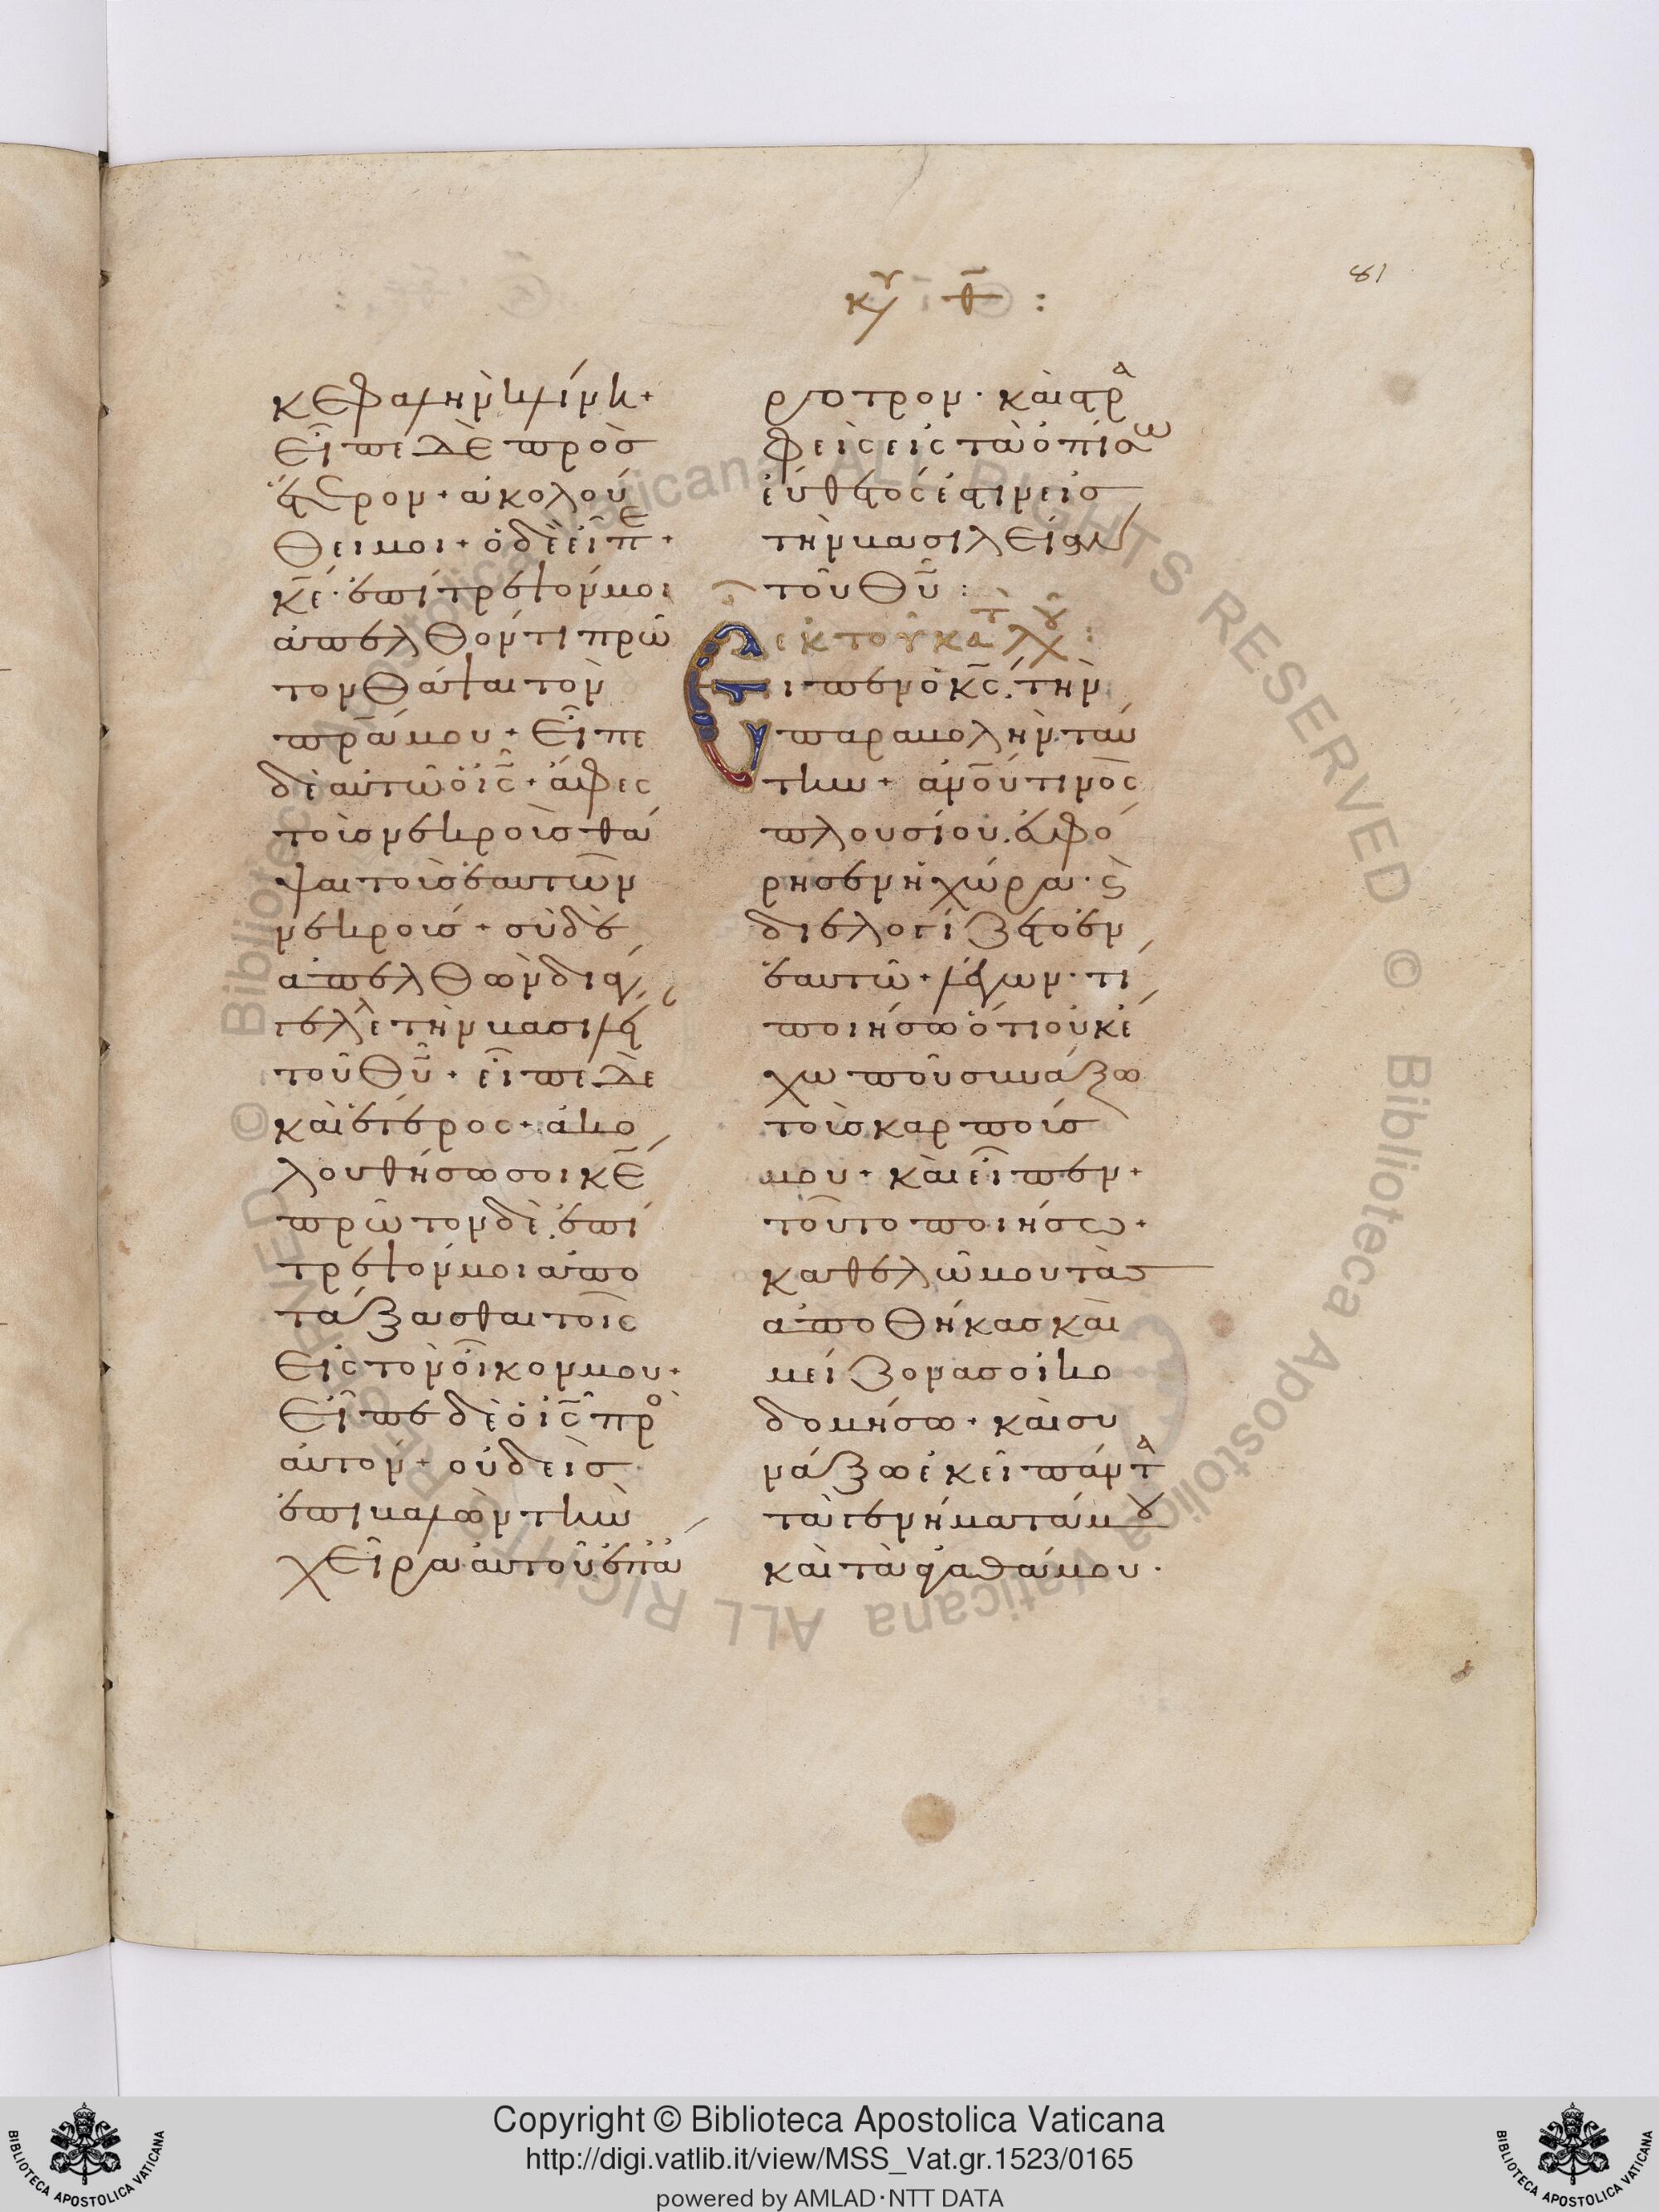 81
κυ θ :
κεφαλὴν κλίνη +
εἶπε δὲ πρὸς
ἕτερον + ἀκολού
θει μοι + ὁ δὲ εἶπε +
κ̅ε̅ · ἐπίτρεψόν μοι
ἀπελθόντι πρῶ
τον θάψαι τὸν
πρ̅α̅ μου + εἶπε
δὲ αὐτῶ ὁ ι̅ς̅ + ἄφες
τοὺς νεκροὺς θά
ψαι τοὺς ἑαυτῶν
νεκρούς + σὺ δὲ
ἀπελθὼν διάγ
γελλε τὴν βασιλεί
τοῦ θ̅υ̅ + εἶπε δὲ
καὶ ἕτερος + ἀκο
λουθήσω σοι κ̅ε̅
πρῶτον δὲ ἐπί
τρεψόν μοι ἀπο
τάξασθαι τοῖς
εἰς τὸν οἶκον μου +
εἶπε δὲ ὁ ι̅ς̅ πρὸ
αὐτόν + οὐδεὶς
ἐπιβαλὼν τὴν
χεῖρα αὐτοῦ ἐπ' ἄ
ροτρον · καὶ στρα
φεὶς εἰς τὰ ὀπίσω
εὔθετός ἐστιν εἰς
τὴν βασιλείαν
τοῦ θ̅υ̅ :
ἐκ τοῦ κατὰ λου :
Εἶπεν ὁ κ̅ς̅ · τὴν
παραβολὴν ταύ
την + α̅ν̅ο̅υ̅ τινὸς
πλουσίου · εὐφό
ρησεν ἡ χώρα · ϛ̀
διελογίζετο ἐν
ἑαυτῶ + λέγων · τί
ποιήσω ὅτι οὐκ ἔ
χω ποῦ συνάξω
τοὺς καρπούς
μου + καὶ εἶπεν +
τοῦτο ποιήσω +
καθελῶ μου τὰς
ἀποθήκας καὶ
μείζονας οἰκο
δομήσω + καὶ συ
νάξω ἐκεῖ πάντα
τὰ γενήματά μου
καὶ τὰ ἀγαθά μου ·
Copyright © Biblioteca Apostolica Vaticana
http://digi.vatlib.it/view/MSS_Vat.gr.1523/0165
powered by AMLAD·NTT DATA